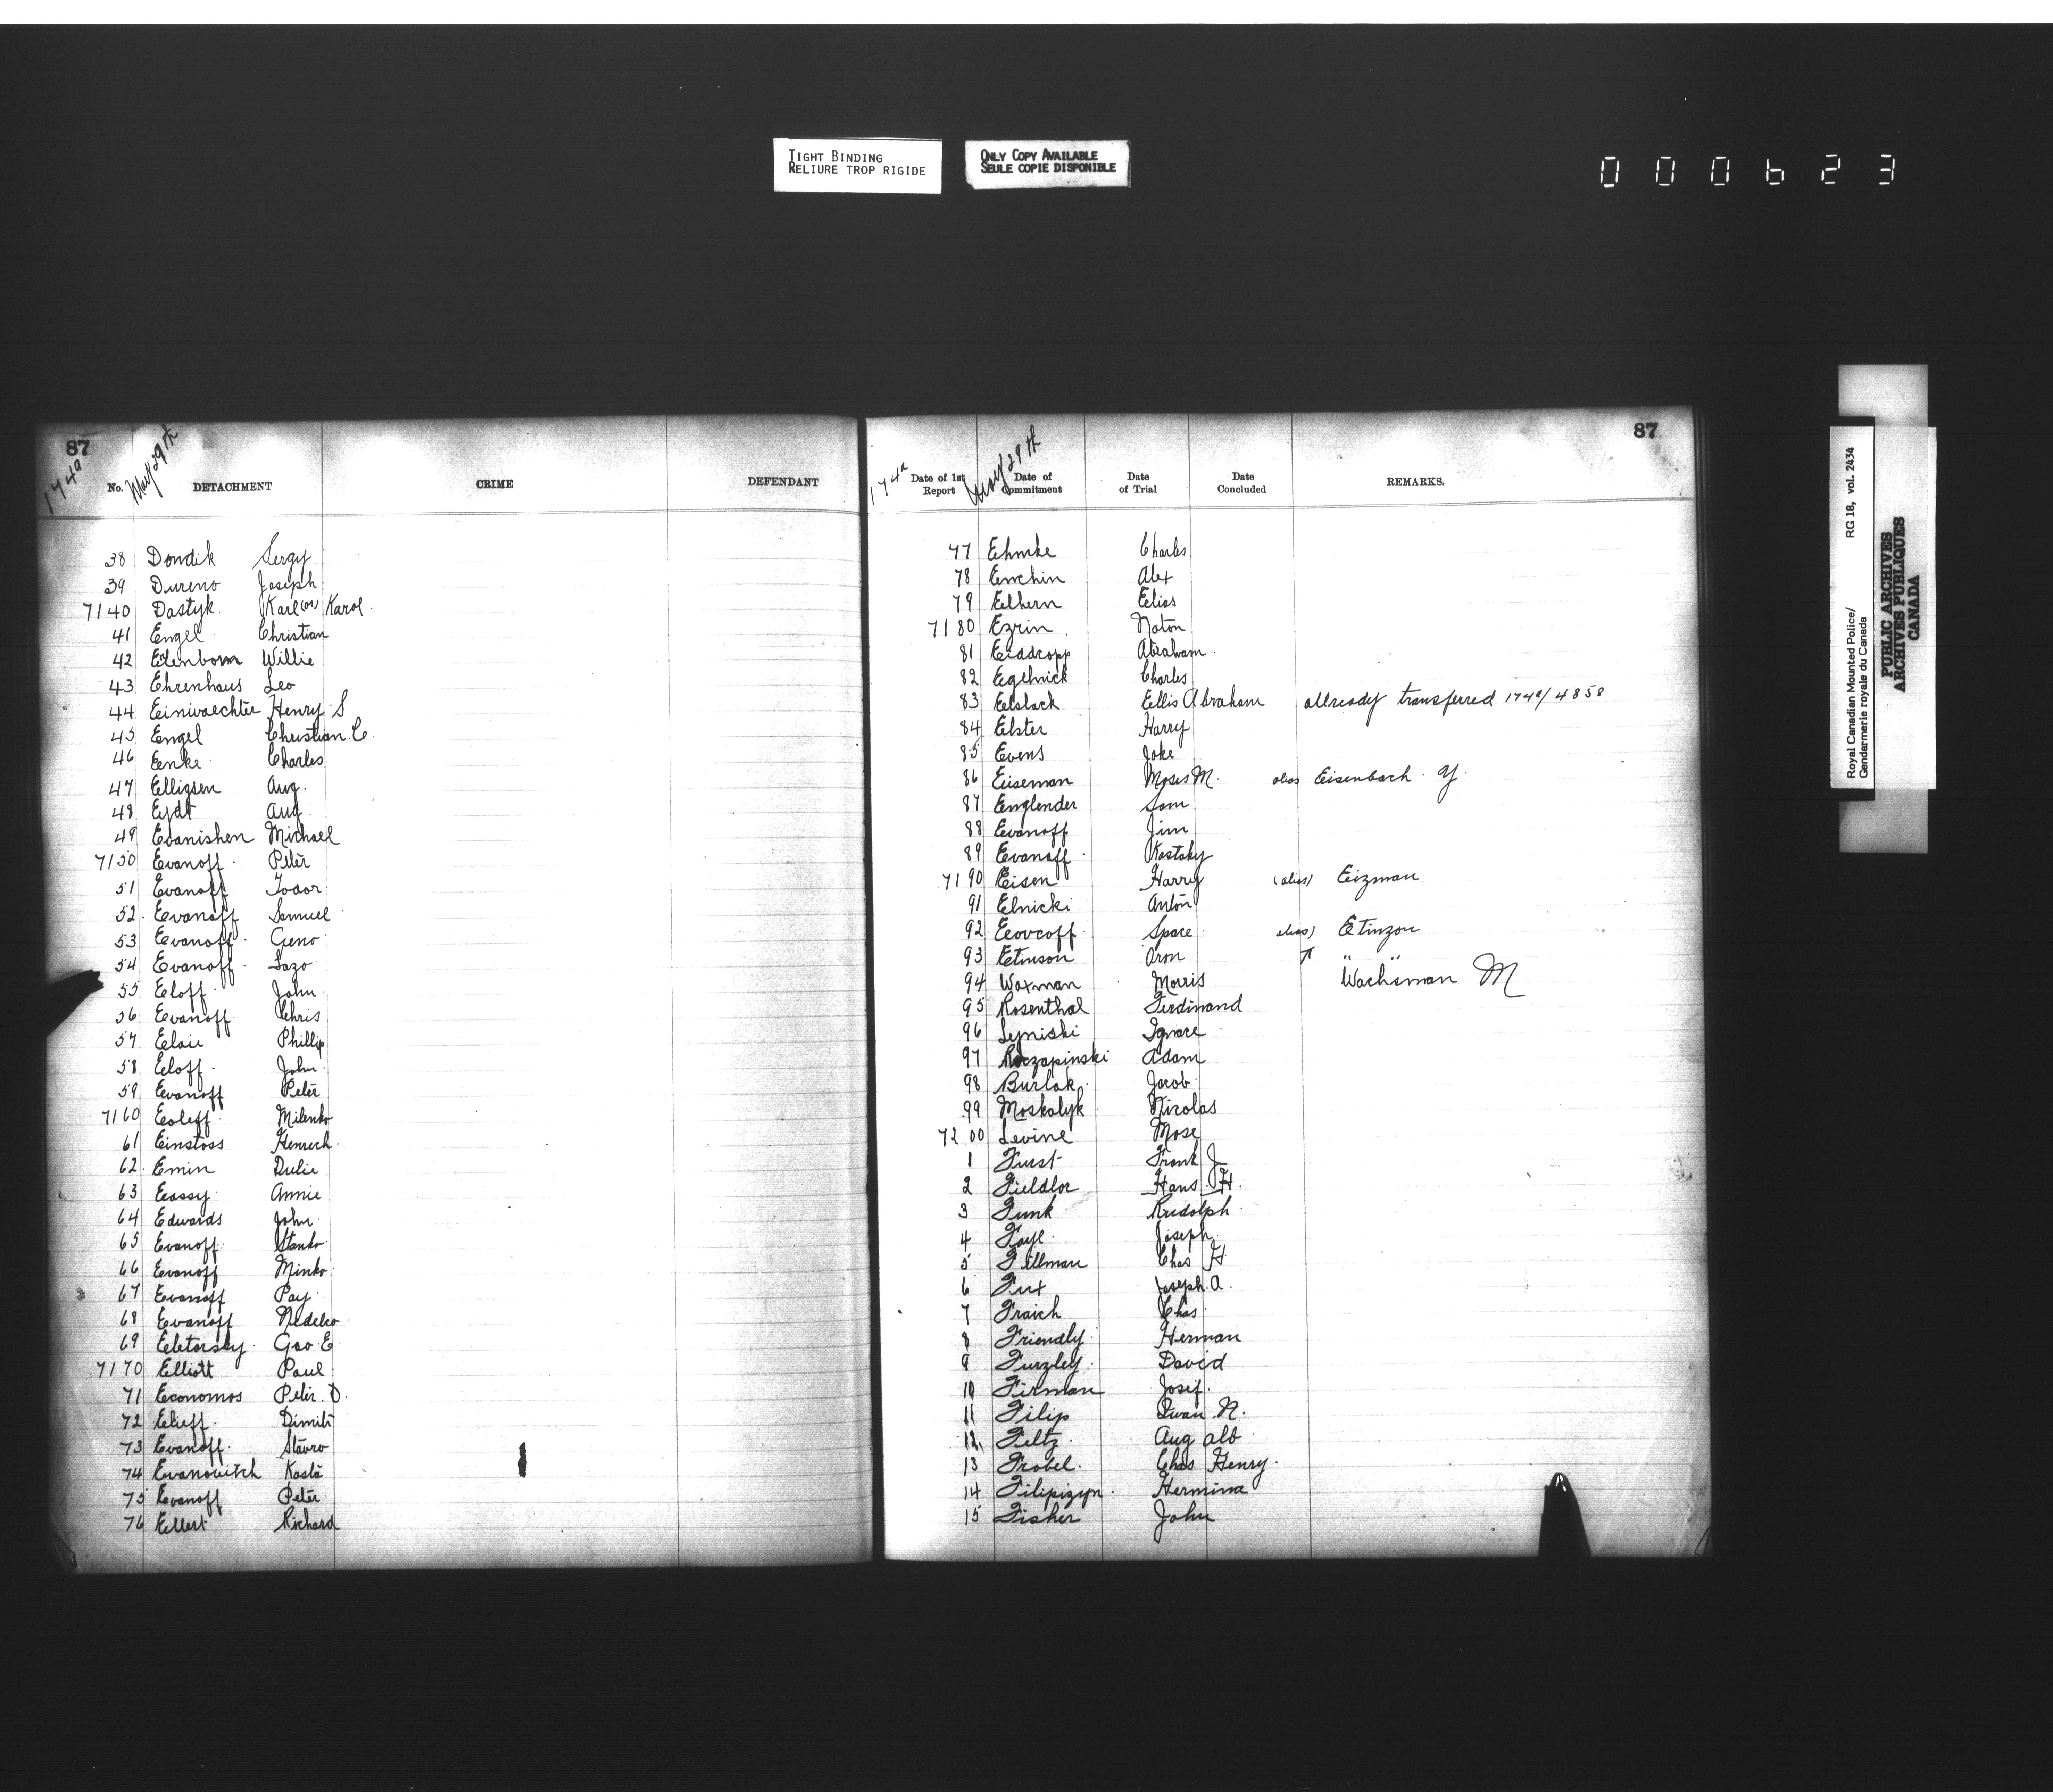 TIGHT BINDING
RELIURE TROP RIGIDE
ONLY COPY AVAILABLE
SEULE COPIE DISPONIBLE
000623
87
174a
No. May 29th DETACHMENT CRIME DEFENDANT
38 Dondik Sergy
39 Dureno Joseph
7140 Dastyk Karl (or) Karol.
41 Engel Christian
42 Willie
43 Ehrenhaus Leo
44 Einwaechter Henry S
45 Engel Christian C.
46 Enke Charles
47 Elligsen Aug.
48 Eydt Aug
49 Evanishen Michael
7150 Evanoff Peter
51 Evanoff Todor
52 Evanoff Samuel
53 Evanoff Geno
54 Evanoff Lazo
55 Eloff John
56 Evanoff Chris
57 Elaie Phillip
58 Eloff John
59 Evanoff Peter
7160 Eoleff Milenko
61 Einstoss Henrech
62 Emin Dulie
63 Eassy Annie
64 Edwards John
65 Evanoff Stanko
66 Evanoff Minko
67 Evanoff Pay
68 Evanoff Nedelco
69 Eletorsky Geo E
7170 Elliott Paul
71 Economos Peter. D.
72 Elieff Dimiti
73 Evanoff Stavro
74 Evanovitch Kosta
75 Evanoff Peter
76 Ellert Richard
87
174a Date of 1st Report May 29th Date of Commitment Date of Trial Date Concluded REMARKS.
77 Ehmke Charles
78 Enchin Alex
79 Elhern Elias
7180 Ezrin Naton
81 Eiddropp Abraham
82 Egelnick Charles
83 Elslack Ellis Abraham allready transferred 174a/4858
84 Elster Harry
85 Evens Jake
86 Eiseman Moses M. alias Eisenbach. Y.
87 Englender Sam
88 Evanoff Jim
89 Evanoff Kostaky
7190 Eisen Harry (alias) Eizman
91 Elnicki Anton
92 Eovcoff Spare alias) Etinzon
93 Etinson Aron " "
94 Waxman Morris Wachsman M
95 Rosenthal Ferdinand
96 Lyniski Ignace
97 Roczapinski Adam
98 Burlak Jacob
99 Moskalyk Nicolas
7200 Levine Mose
1 Furst Frank J
2 Fieldlor Hans. H.
3 Funk Rudolph
4 Faye Joseph
5 Fillman Chas H
6 Fux Joseph. A.
7 Fraich Chas.
8 Friendly Herman
9 Furzley David
10 Firman Josef.
11 Filip Iwan N.
12 Feltz Aug Alb
13 Frobel. Chas Henry.
14 Filipizyn Hermina
15 Fisher John
Royal Canadian Mounted Police/ RG 18, vol. 2434
Gendarmerie royale du Canada
PUBLIC ARCHIVES
ARCHIVES PUBLIQUES
CANADA